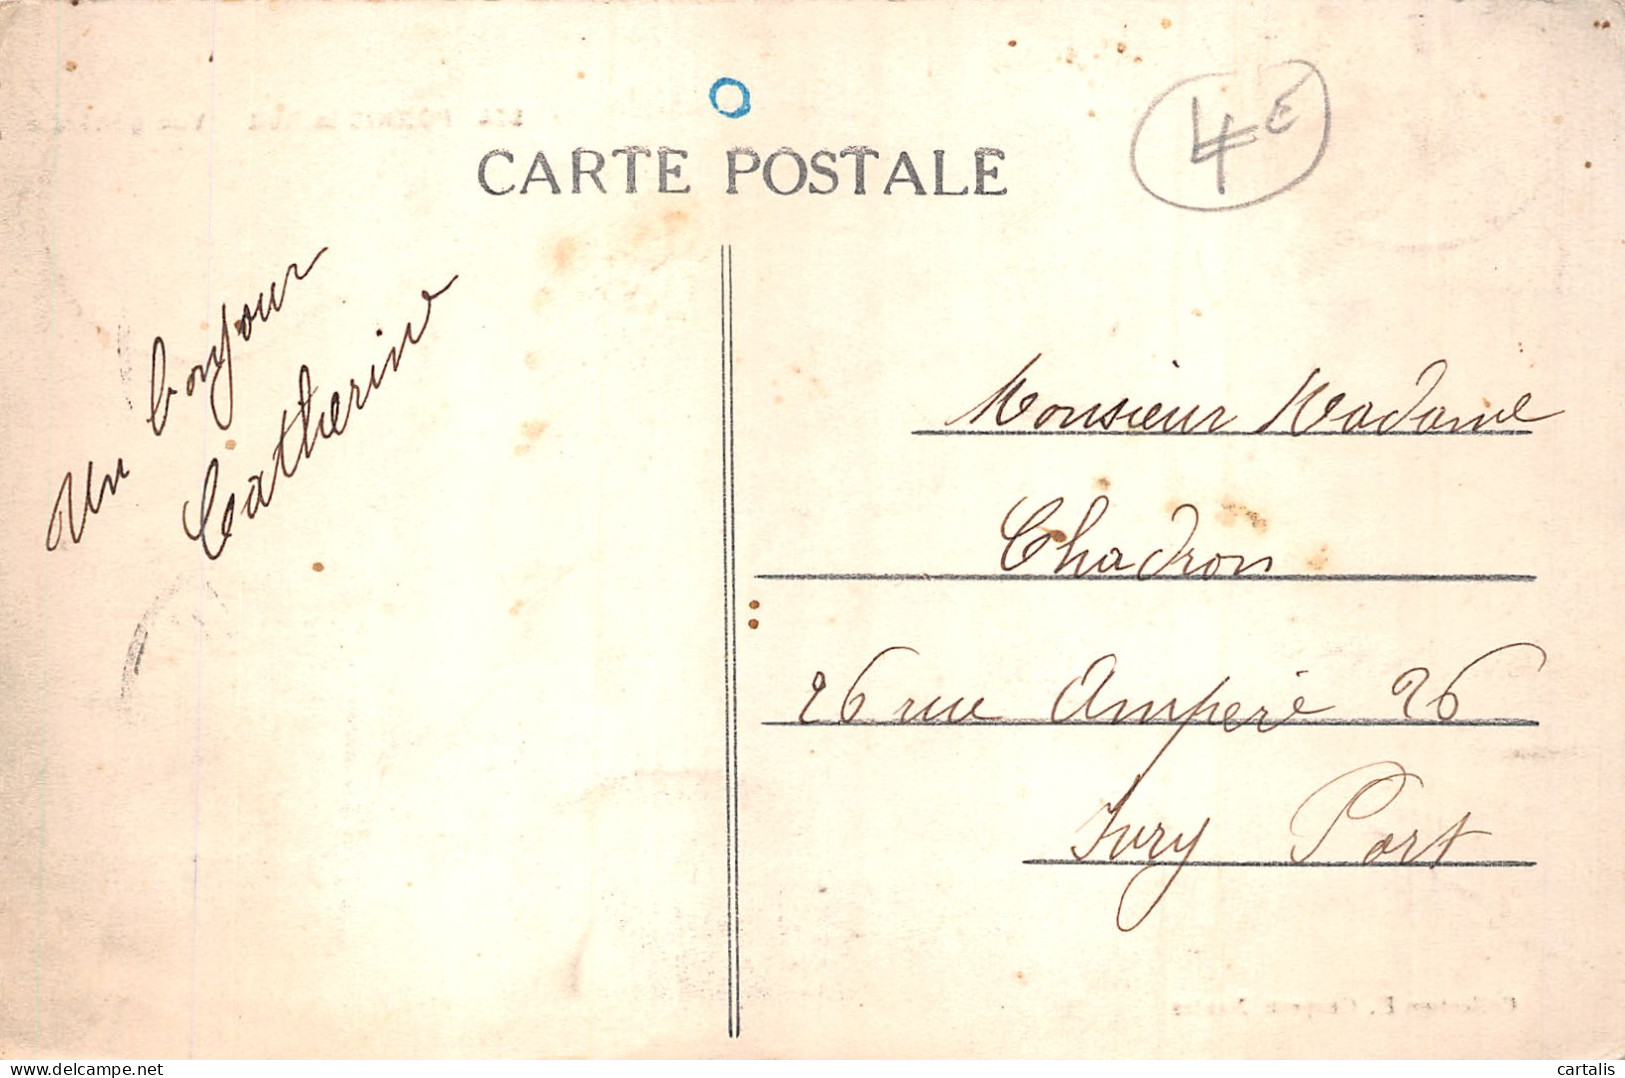 CARTE POSTALE
4€
Un bonjour
Catherine
Monsieur Madame
Chadron
26 rue Ampère 26
Ivry Port
delcampe.net
cartalis